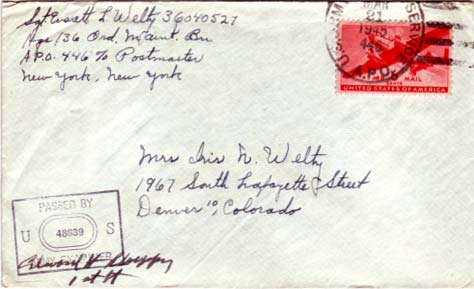 Sgt Everett L. Welty 36040527
Hqs/136 Ord. Maint. Bn
A.P.O. 446 % Postmaster
New York, New York
U.S. ARMY SERVICE
MAR
21
1945
446
A.P.O.
MAIL
UNITED STATES OF AMERICA
Mrs Iris N. Welty
1967 South Lafayette Street
Denver 10, Colorado
PASSED BY
U 48639 S
ARMY EXAMINER
1st Lt